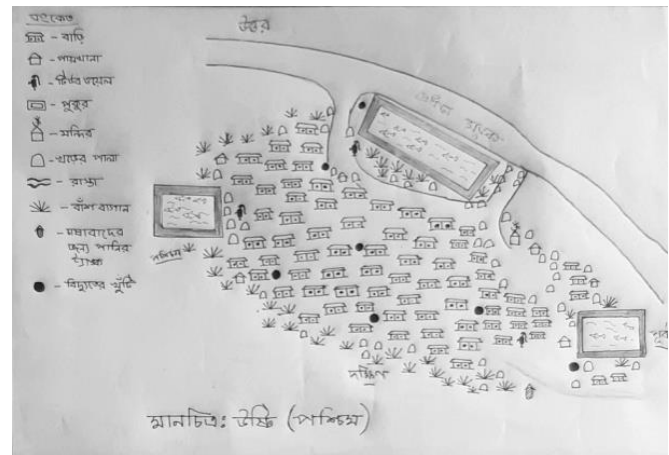 সংকেত
- বাড়ি
- পায়খানা
- টিউবওয়েল
- পুকুর
- মন্দির
- খড়ের পালা
- রাস্তা
- বাঁশ বাগান
জন্য পানির
- বিদ্যুতের খুঁটি
উত্তর
পশ্চিম
দক্ষিণ
পূর্ব
মানচিত্র: উষ্টি (পশ্চিম)